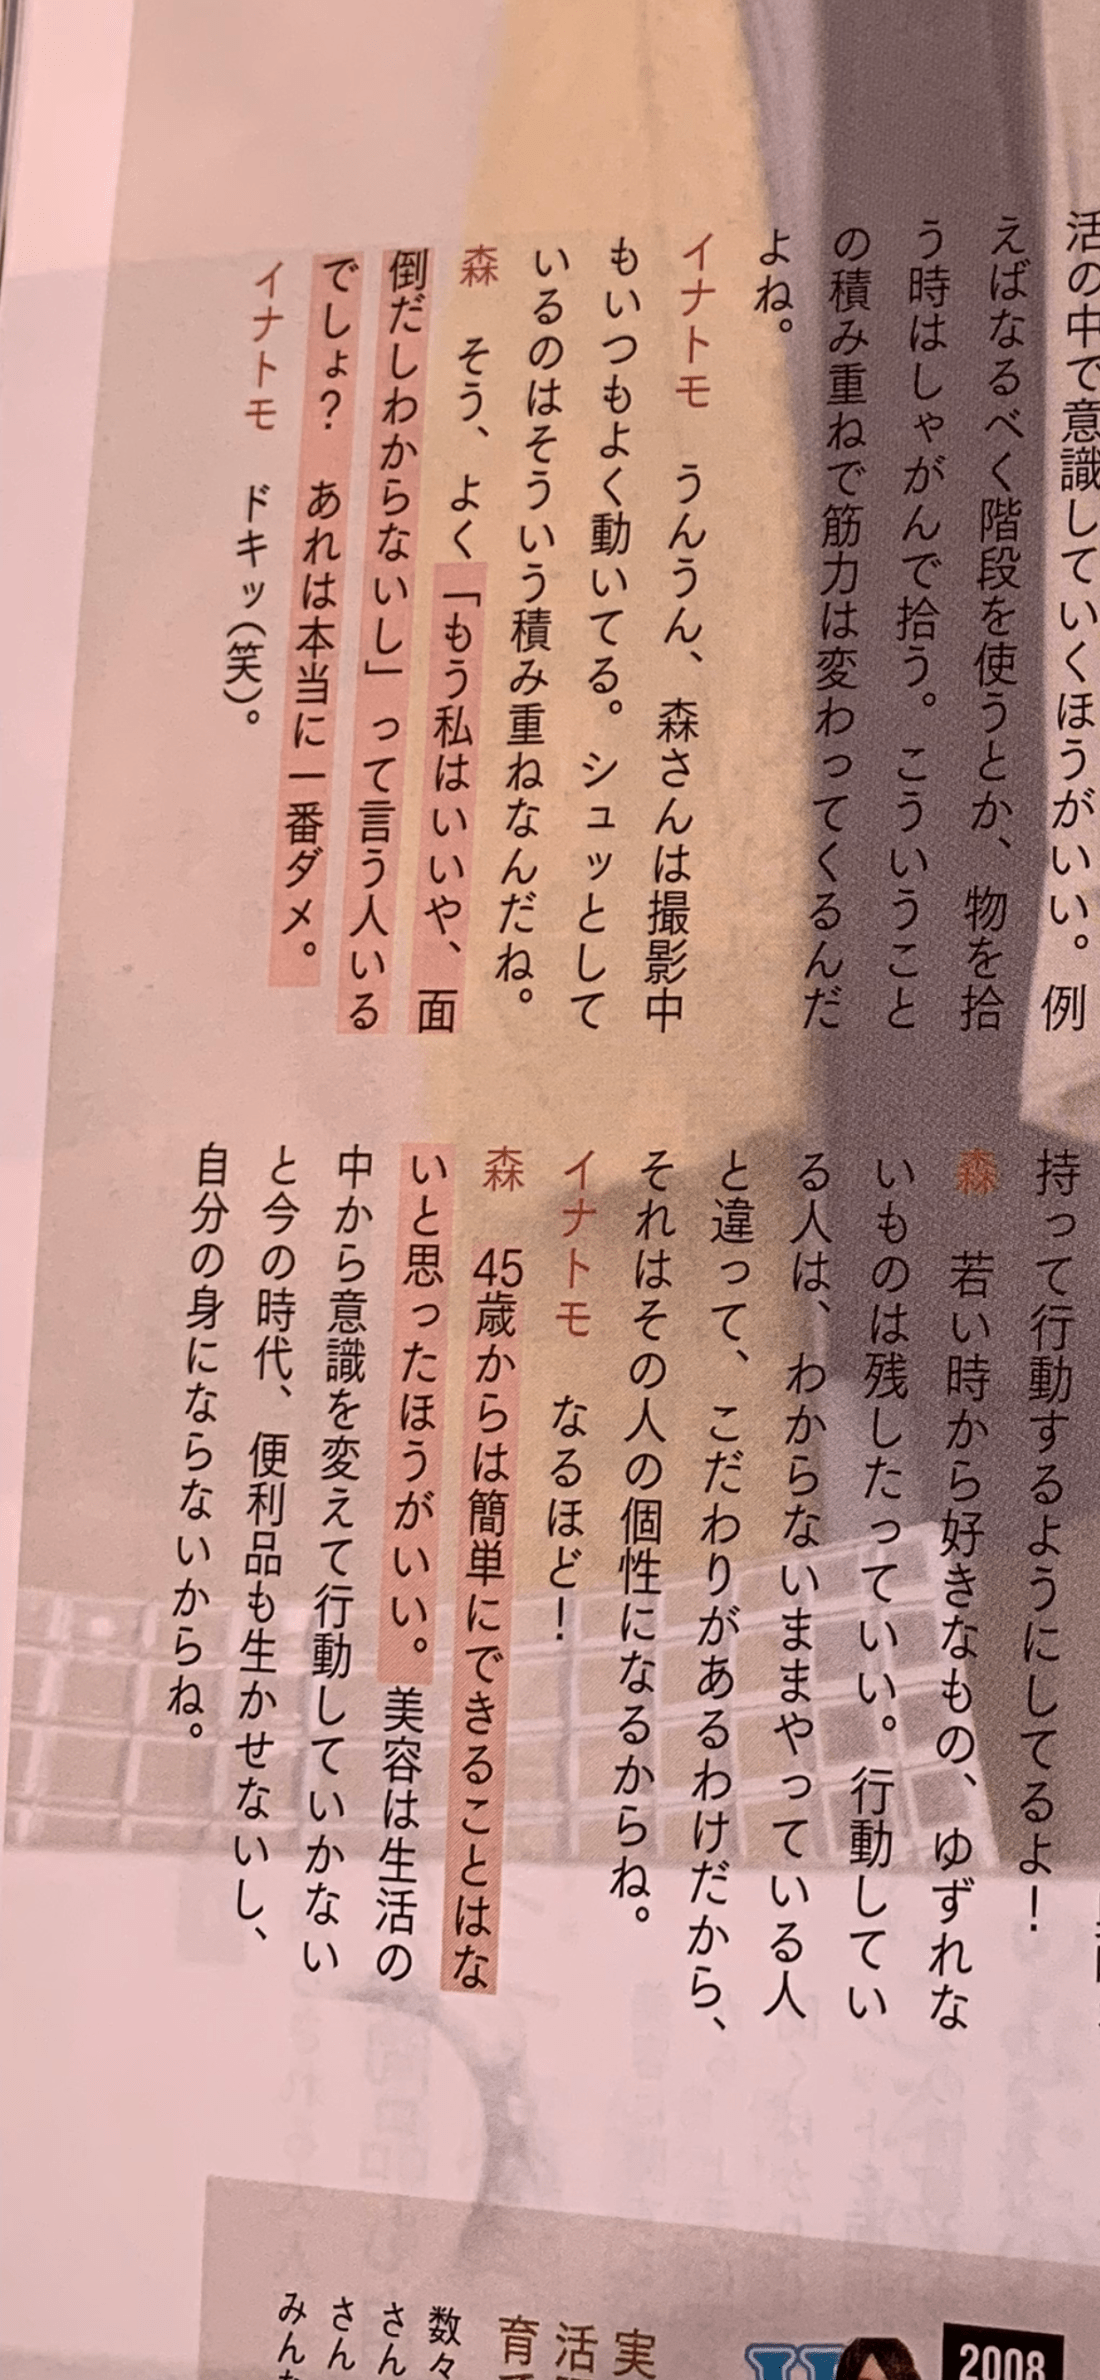 活の中で意識していくほうがいい。例
えばなるべく階段を使うとか、物を拾
う時はしゃがんで拾う。こういうこと
の積み重ねで筋力は変わってくるんだ
よね。
イナトモ　うんうん、森さんは撮影中
もいつもよく動いてる。シュッとして
いるのはそういう積み重ねなんだね。
森　そう、よく「もう私はいいや、面
倒だしわからないし」って言う人いる
でしょ？　あれは本当に一番ダメ。
イナトモ　ドキッ（笑）。
持って行動するようにしてるよ！
森　若い時から好きなもの、ゆずれな
いものは残したっていい。行動してい
る人は、わからないままやっている人
と違って、こだわりがあるわけだから、
それはその人の個性になるからね。
イナトモ　なるほど！
森　45歳からは簡単にできることはな
いと思ったほうがいい。美容は生活の
中から意識を変えて行動していかない
と今の時代、便利品も生かせないし、
自分の身にならないからね。
2008
実
活
育
数々
さん
さん
みんな